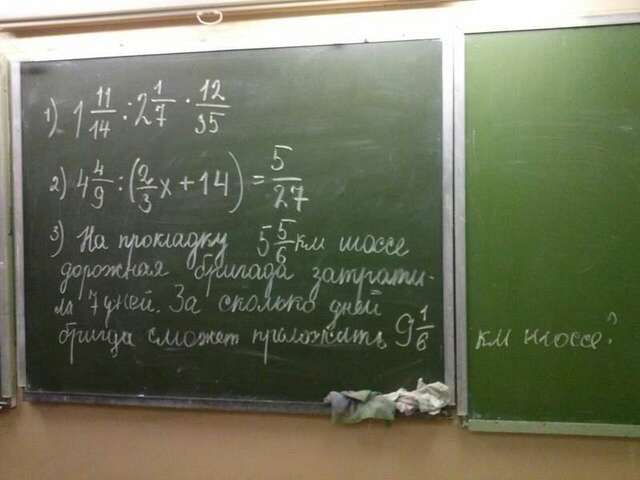 1) 1 11/14 : 2 1/7 · 12/35
2) 4 4/9 : (2/3 x + 14) = 5/27
3) На прокладку 5 5/6 км шоссе
дорожная бригада затрати-
ла 7 дней. За сколько дней
бригада сможет проложить 9 1/6 км шоссе?